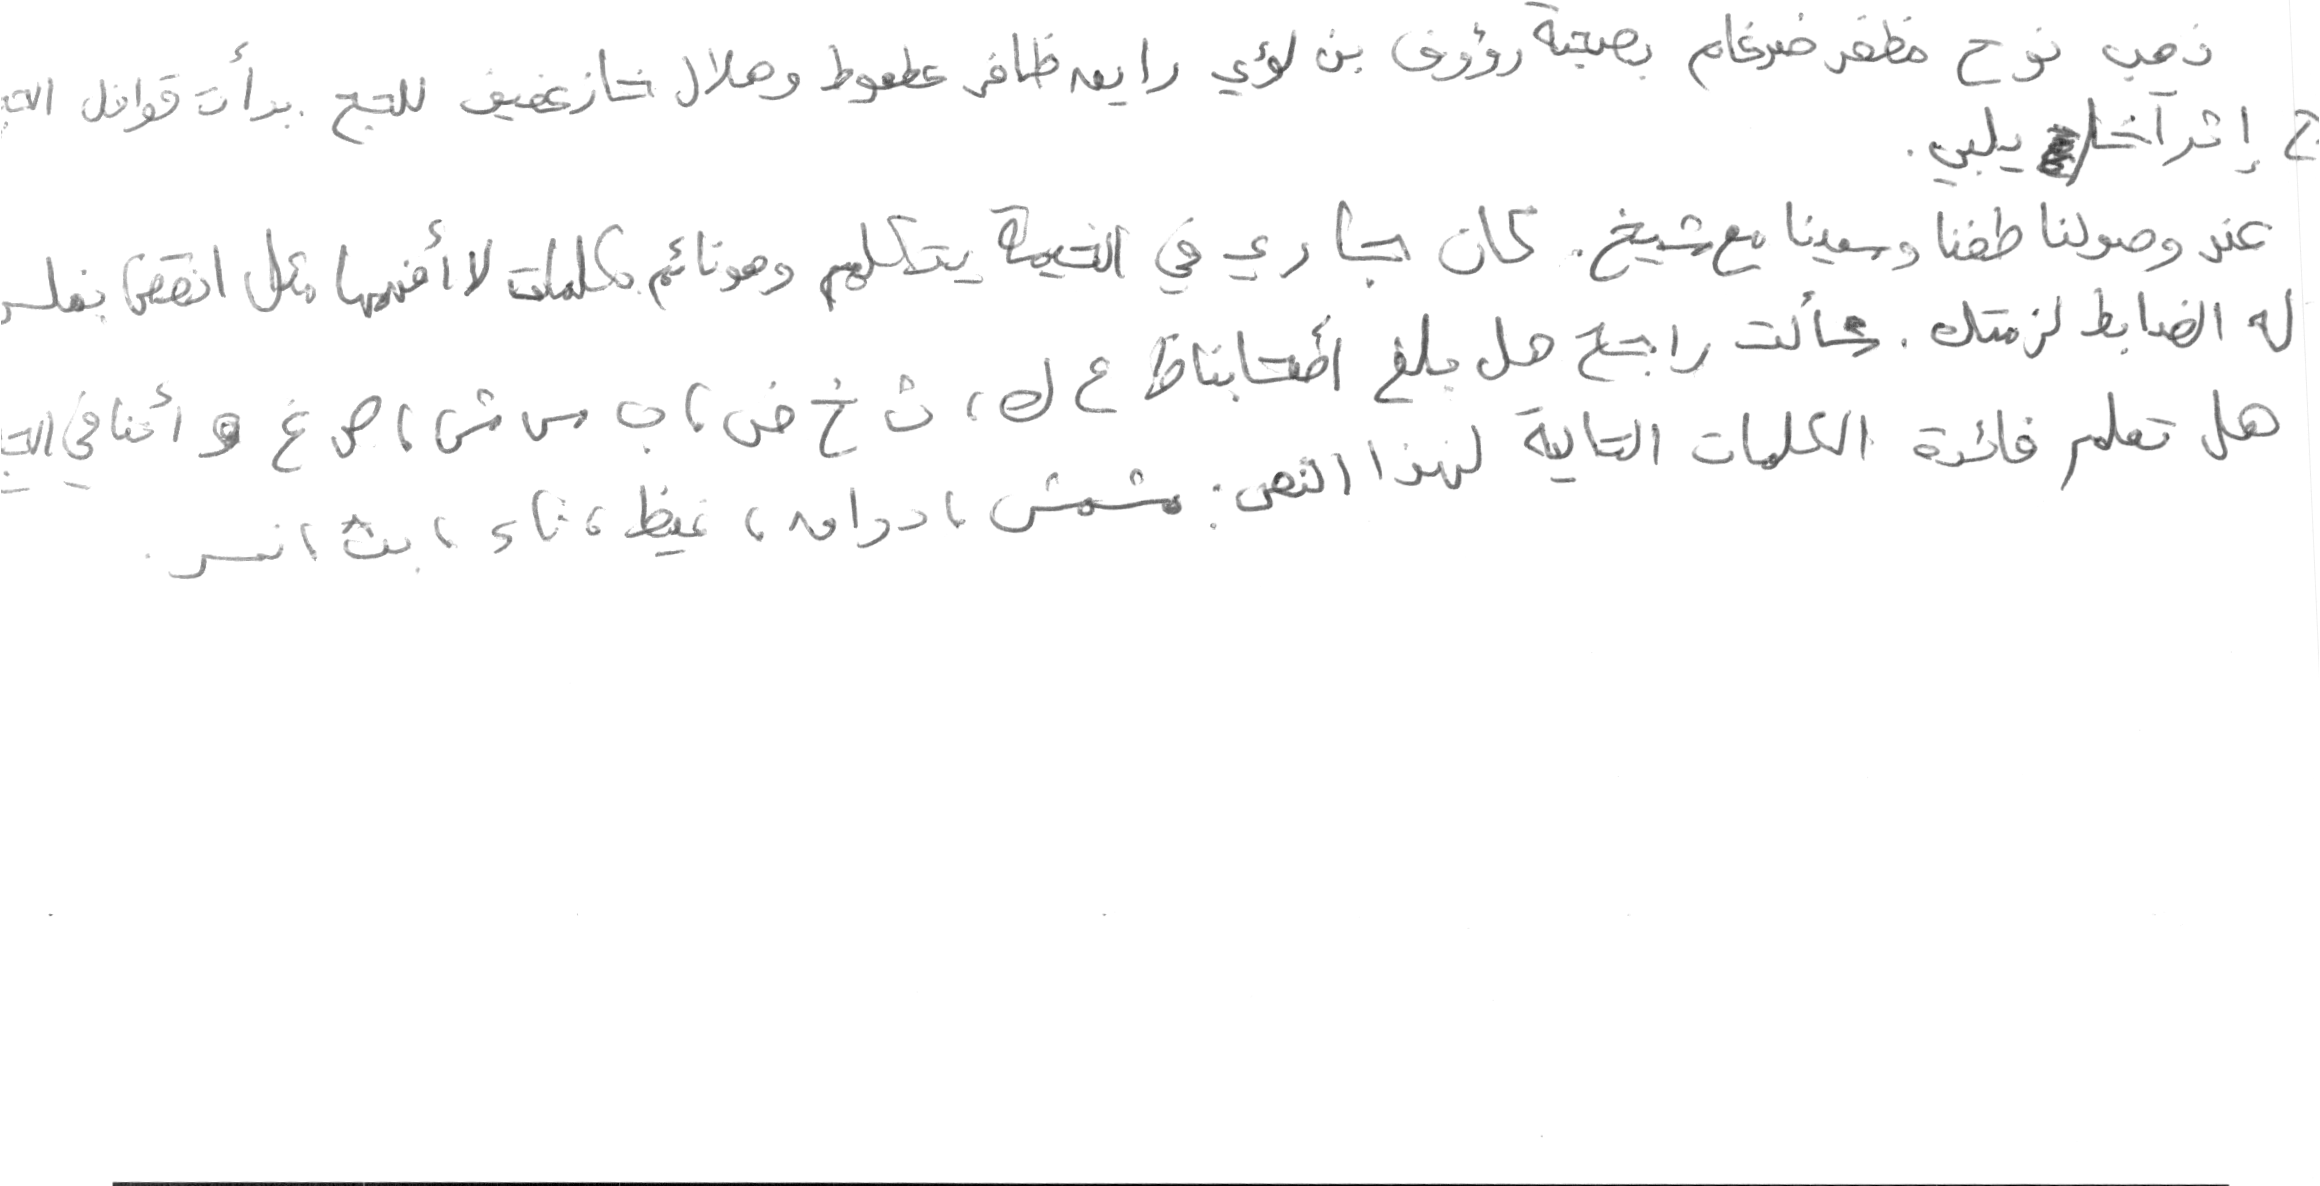 ذهب نوح مظفر ضرغام بصحبة رؤوف بن لؤي رايه ظافر عطعوط وهلال خاز عفيف للحج . بدأت قوافل الحجا
ج إثر اخلا يلبي .
عند وصولنا طفنا وسعينا مع شيخ . كان جاري في الخيمة يتكلم وهو نائم بكلمات لا أفهمها مثل انقض بفلس
له الضابط لزمتك . سألت راجح هل بلغ ع ك ، ث خ ض ، ب س ش ، ص غ و
هل تعلم فائدة الكلمات التالية لهذا النص : مشمش ، دراهم ، غيظ ، ناء ، بث ، نسر .